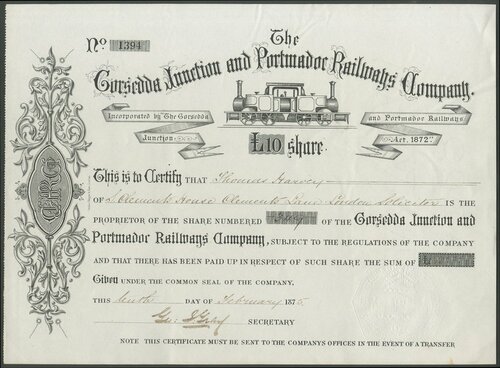 No 1394
The
Gorsedda Junction and Portmadoc Railways Company.
Incorporated by "The Gorsedda
Junction
and Portmadoc Railways
Act, 1872".
£10 share.
This is to Certify THAT Thomas Harvey
OF St Clements House Clements Lane London Solicitor IS THE
PROPRIETOR OF THE SHARE NUMBERED OF THE Gorsedda Junction and
Portmadoc Railways Company, SUBJECT TO THE REGULATIONS OF THE COMPANY
AND THAT THERE HAS BEEN PAID UP IN RESPECT OF SUCH SHARE THE SUM OF £
Given UNDER THE COMMON SEAL OF THE COMPANY.
THIS DAY OF February 1875
SECRETARY
NOTE THIS CERTIFICATE MUST BE SENT TO THE COMPANYS OFFICES IN THE EVENT OF A TRANSFER